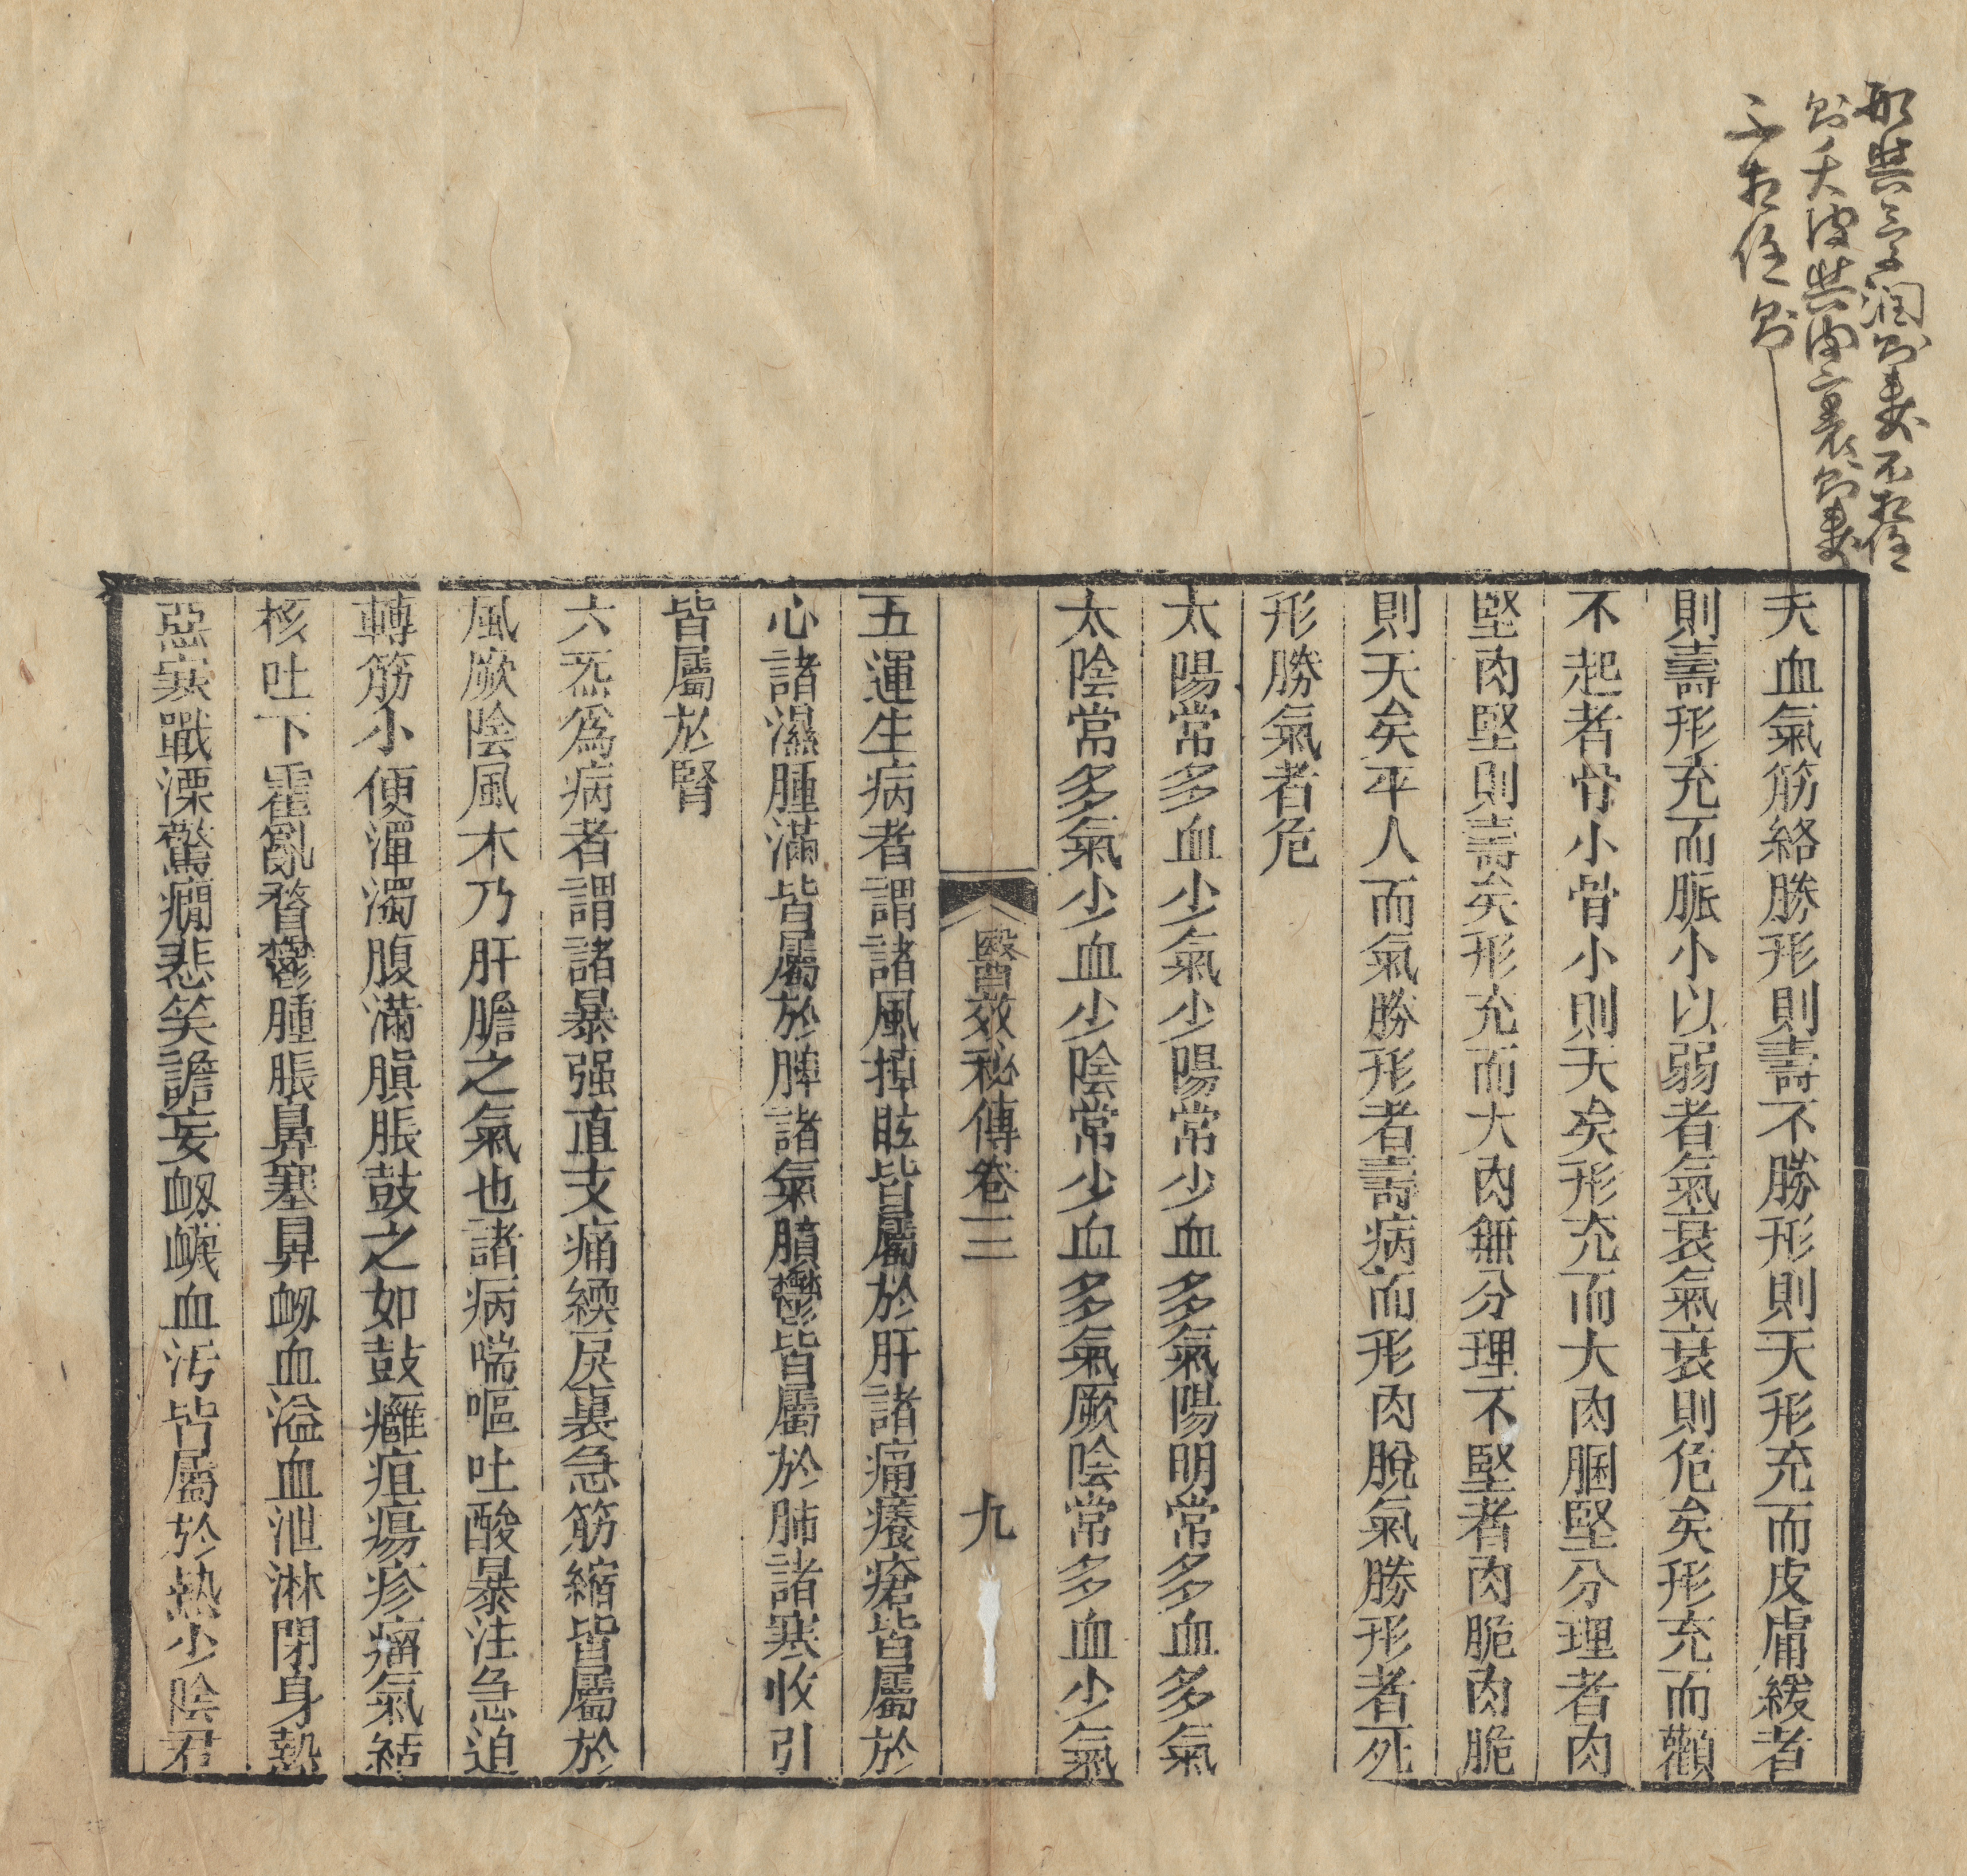 不相任則
則夭皮與肉裹則壽
夭血氣筋絡勝形則壽不勝形則夭形充而皮膚緩者
則壽形充而脈小以弱者氣衰氣衰則危矣形充而顴
不起者骨小骨小則夭矣形充而大肉䐃堅分理者肉
堅肉堅則壽矣形充而大肉無分理不堅者肉脆肉脆
則夭矣平人而氣勝形者壽病而形肉脫氣勝形者死
形勝氣者危
太陽常多血少氣少陽常少血多氣陽明常多血多氣
太陰常多氣少血少陰常少血多氣厥陰常多血少氣
醫效秘傳卷三 九
五運生病者謂諸風掉眩皆屬於肝諸痛癢瘡皆屬於
心諸濕腫滿皆屬於脾諸氣膹鬱皆屬於肺諸寒收引
皆屬於腎
六炁爲病者謂諸暴强直支痛緛戾裏急筋縮皆屬於
風厥陰風木乃肝膽之氣也諸病喘嘔吐酸暴注急迫
轉筋小便渾濁腹滿䐜脹鼓之如鼓癰疽瘍疹瘤氣結
核吐下霍亂瞀鬱腫脹鼻塞鼻衄血溢血泄淋閉身熱
惡寒戰慄驚癇悲笑譫妄衄衊血汚皆屬於熱少陰君